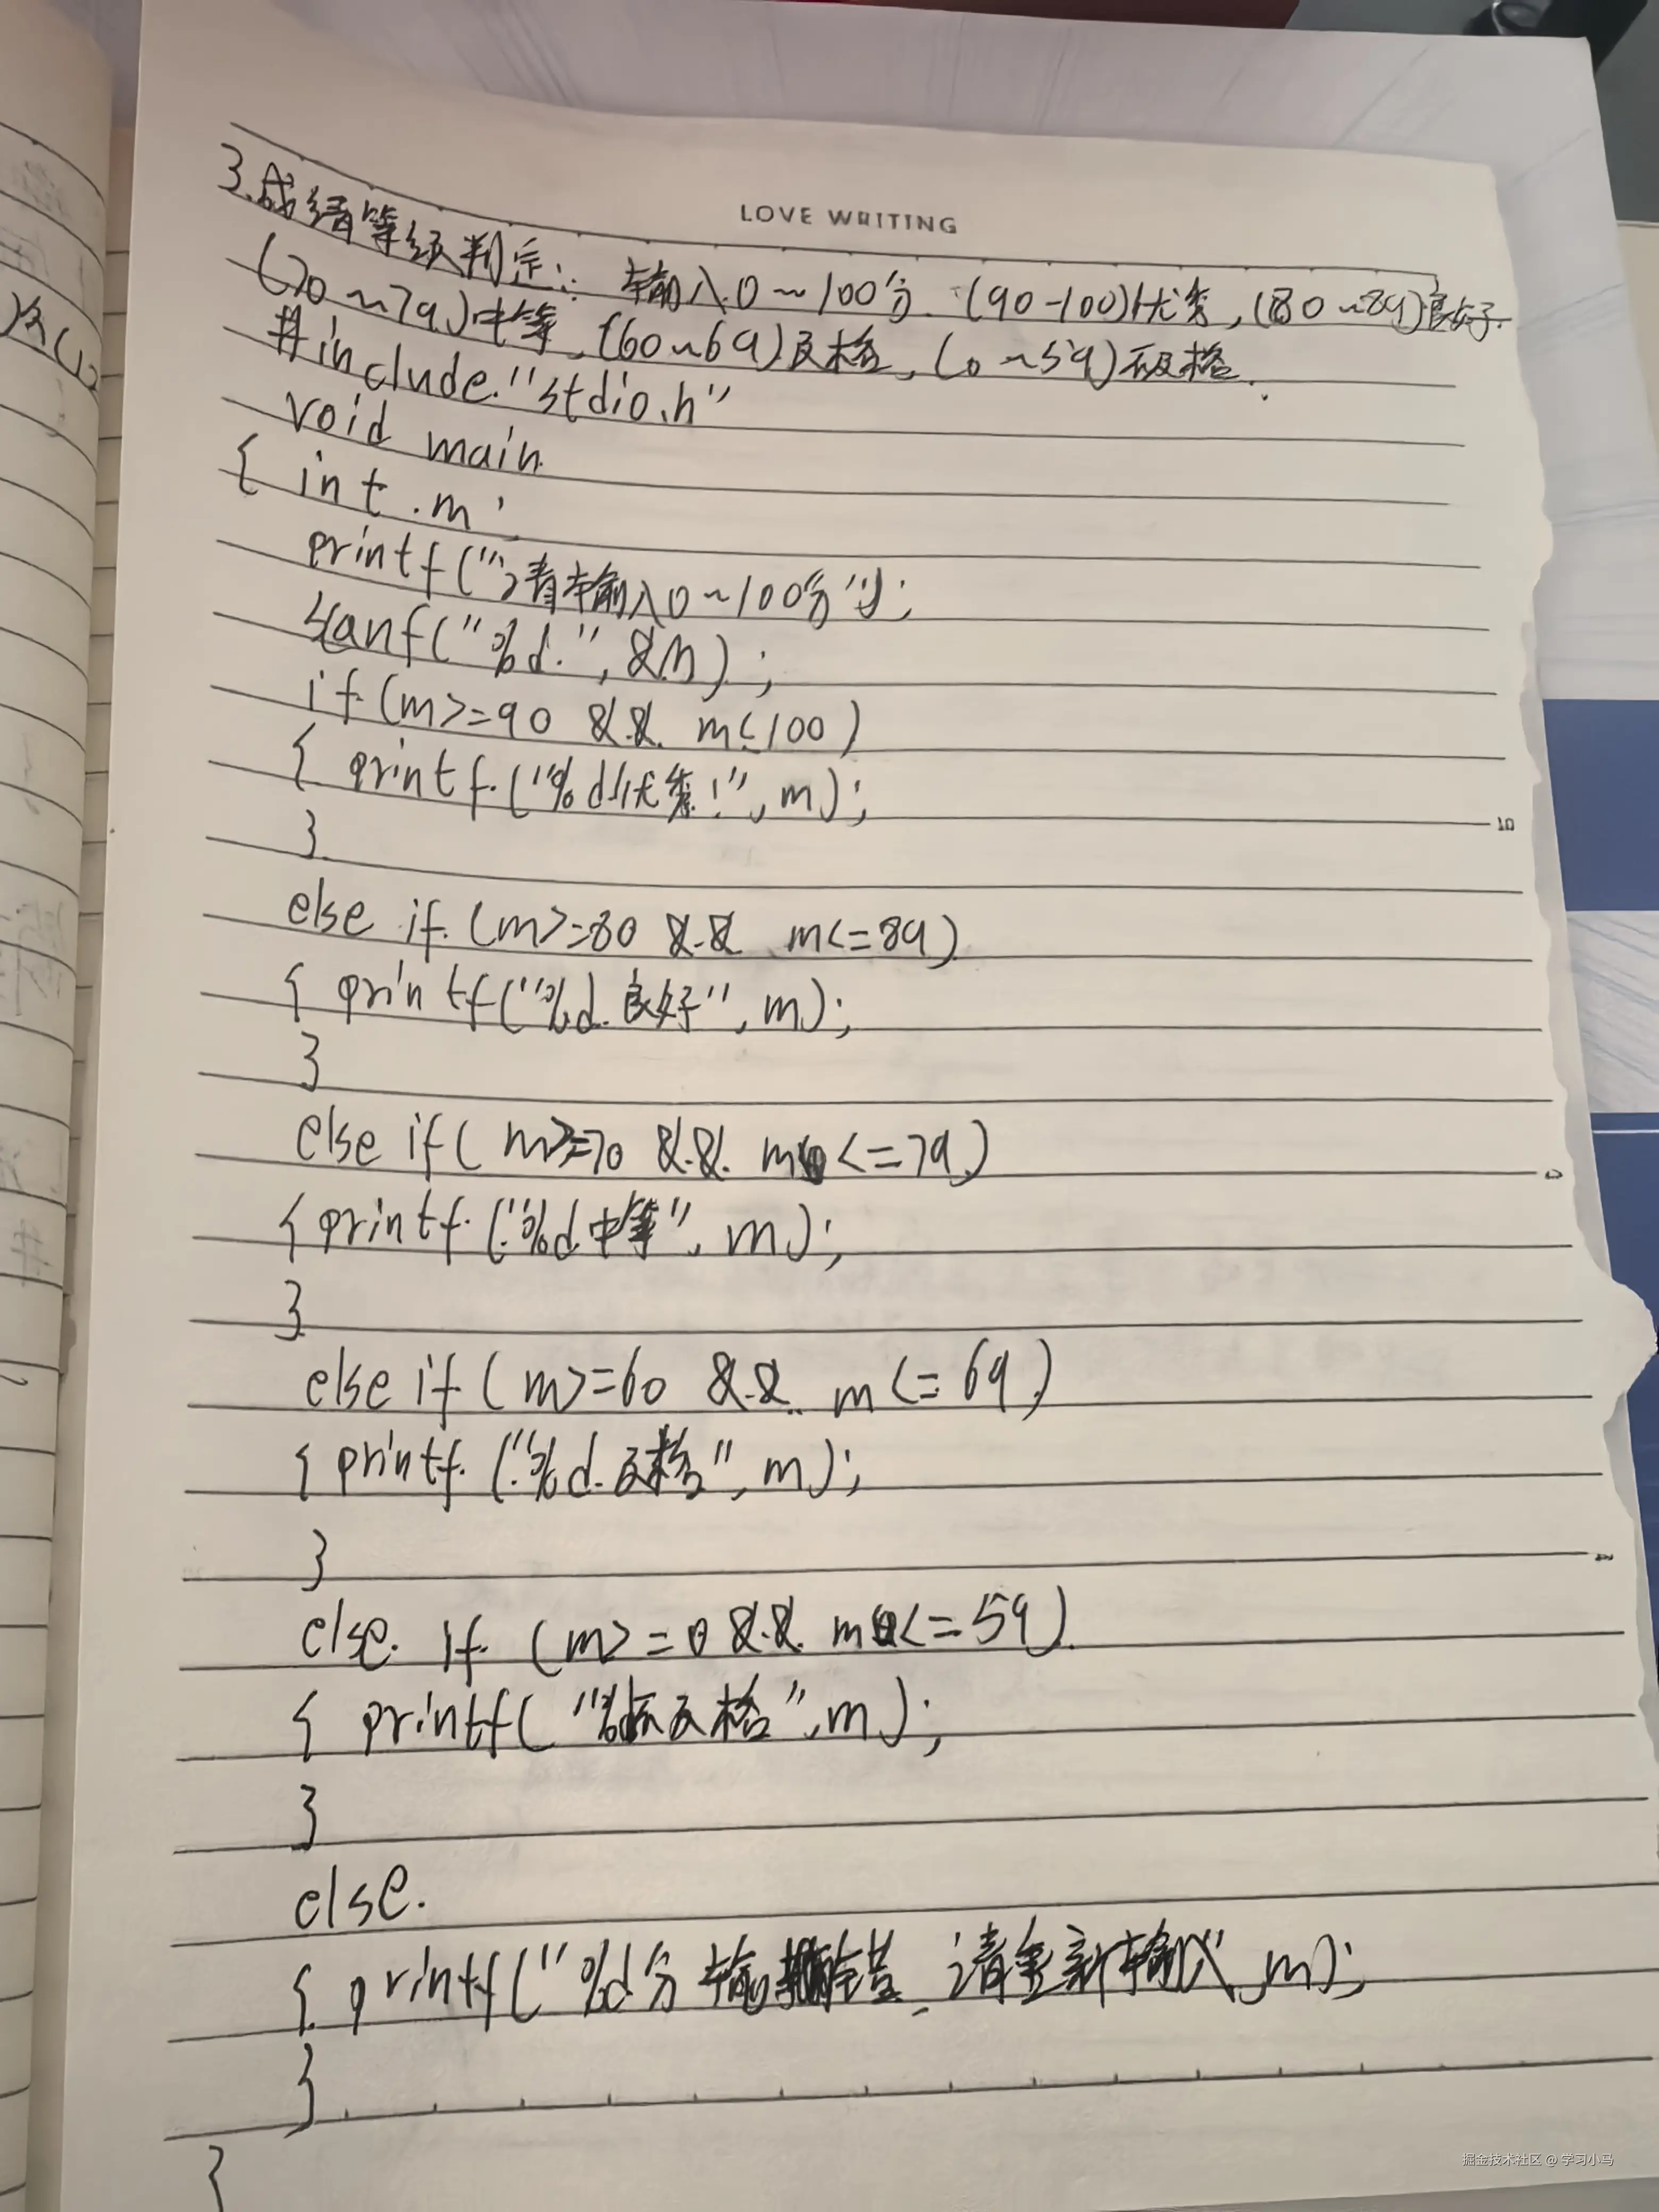 LOVE WRITING
3.成绩等级判定:: 输入0~100分.(90-100)优秀,(80~89)良好.
(70~79)中等,(60~69)及格,(0~59)不及格.
#include "stdio.h"
void main
{ int m;
printf("请输入0~100分");
scanf("%d.",&m);
if(m>=90 && m<100)
{ printf("%d优秀!",m);
}
10
else if(m>=80 && m<=89)
{ printf("%d良好",m);
}
else if(m>=70 && m<=79)
{printf("%d中等",m);
}
else if(m>=60 && m<=69)
{ printf("%d及格",m);
}
else if(m>=0 && m<=59)
{ printf("%d不及格",m);
}
else.
{ printf("%d分输错,请重新输入",m);
}
}
掘金技术社区 @ 学习小马